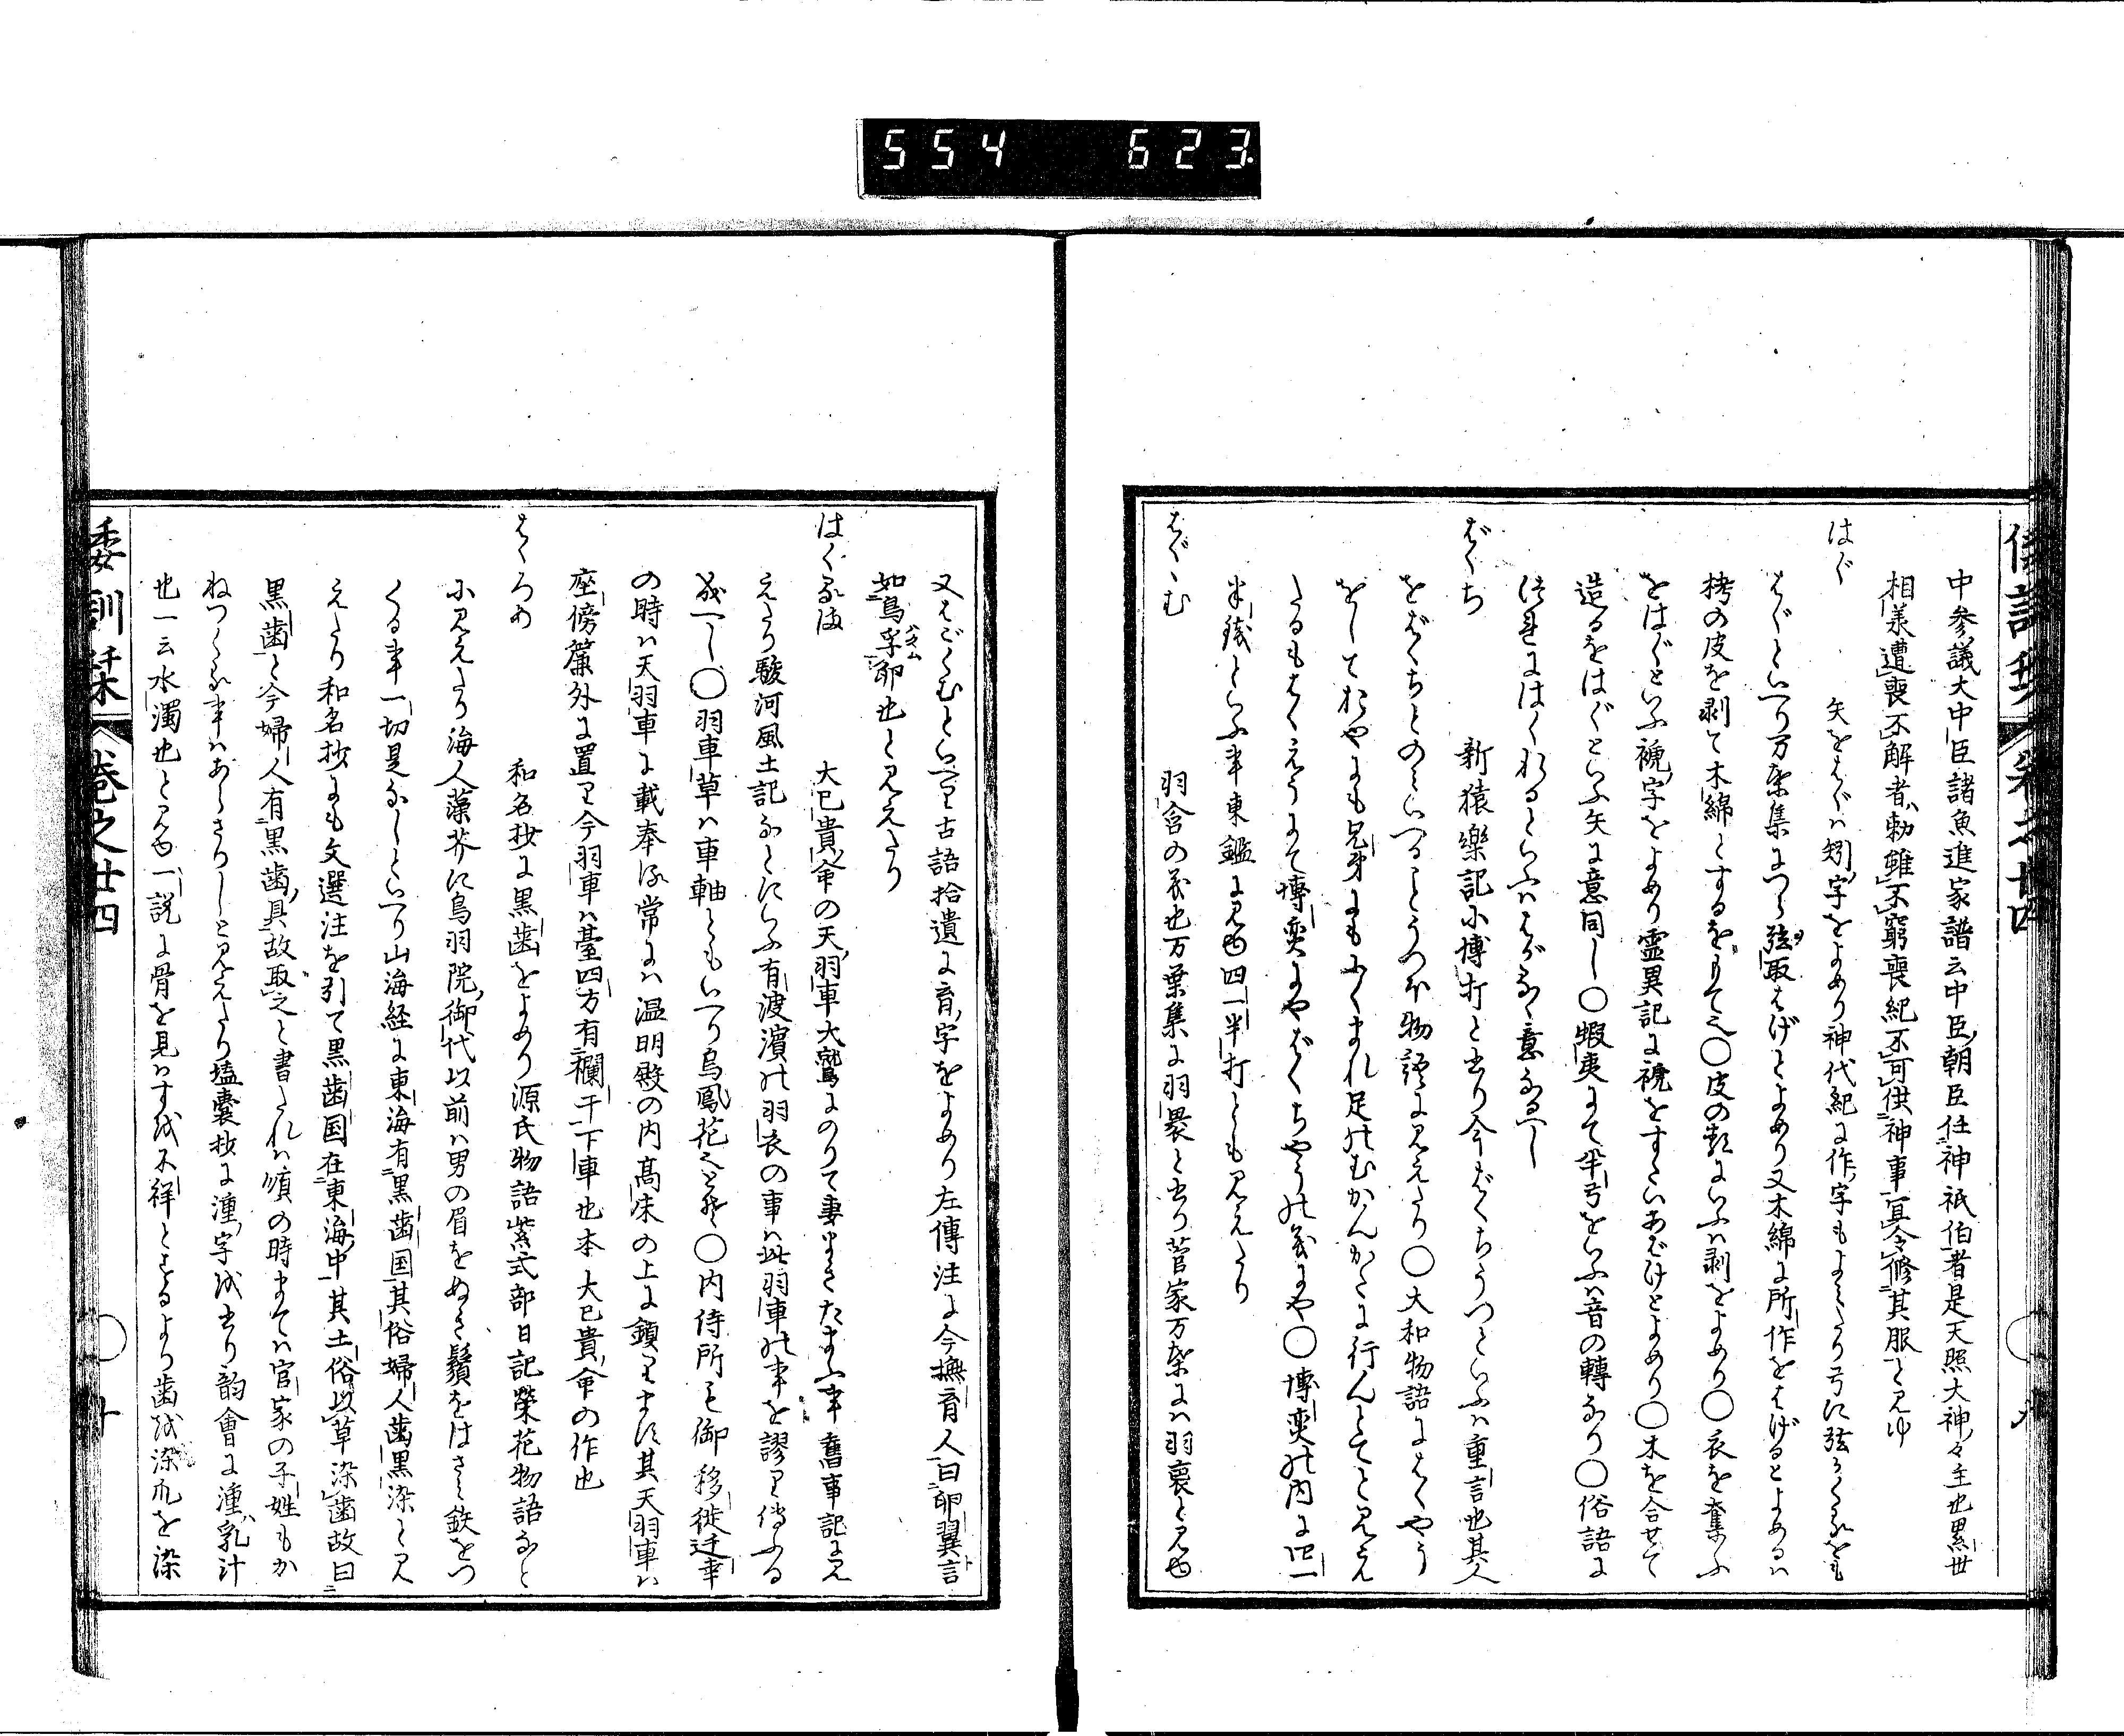 554 623
中参議大中臣諸魚進家譜云中臣朝臣任神祇伯者是天照大神々主也累世
相承遭喪不解者勅雖不窮喪紀不可供神事宜令修其服と見ゆ
はぐ 矢をはぐハ矧字をよめり神代紀に作字もよミたり弓に弦かくるをも
はぐといへり万葉集につら弦取はげとよめり又木綿に所作をはげるとよめるハ
栲の皮を剥て木綿とするをもて也○皮の類にいふハ剥をよめり○衣を奪ふ
をはぐといふ褫字をよめり霊異記に褫をすたいあばけとよめり○木を合せて
造るをはぐといふ矢に意同し○蝦夷にて半弓をいふハ音の轉なり○俗語に
はくれるといふハはがるゝ意なるへし
ばくち 新猿樂記小博打と出り今ばくちうつといふハ重言也其人
をばくちとのミいへることうつほ物語に見えたり○大和物語にはくやう
をしておやにも兄弟にもにくまれ足のむかんかたに行んとてと見え
たるもはくえうにて博奕にやばくちやうの義にや○博奕の内に四一
半錢といふ事東鑑に見ゆ四一半打とも見えたり
はぐゝむ 羽含の義也万葉集に羽裹と出り菅家万葉にハ羽裹と見ゆ
又はごくむといへり古語拾遺に育字をよめり左傳注に今撫育人曰卵翼言
如鳥孚卵也と見えたり
はぐるま 大已貴命の天羽車大鷲にのりて妻まきたまふ事舊事記に見
えたり駿河風土記なとにいふ有渡濱の羽衣の事ハ此羽車の事を謬り傳ふる
成へし○羽車草ハ車軸ともいへり烏鳳花也とそ○内侍所も御移徙遷幸
の時ハ天羽車に載奉る常にハ温明殿の内高床の上に鎮ります其天羽車ハ
座傍簾外に置り今羽車ハ臺四方有欄干下車也本大已貴命の作也
はくろめ 和名抄に黒歯をよめり源氏物語紫式部日記榮花物語なと
に見えたり海人藻芥に鳥羽院御代以前ハ男の眉をぬき鬚をはさミ鉄をつ
くる事一切是なしといへり山海経に東海有黒歯国其俗婦人歯黒染と見
えたり和名抄にも文選注を引て黒歯国在東海中其土俗以草染歯故曰
黒歯と今婦人有黒歯具故取之と書たれハ順の時まてハ官家の子姓もか
ねつくる事ハあらさりしと見えたり壒嚢抄に湩字を出り韵會に湩乳汁
也一云水濁也と見ゆ一説に骨を見ハすを不祥とするより歯を染爪を染
倭訓栞 巻之廿四 十